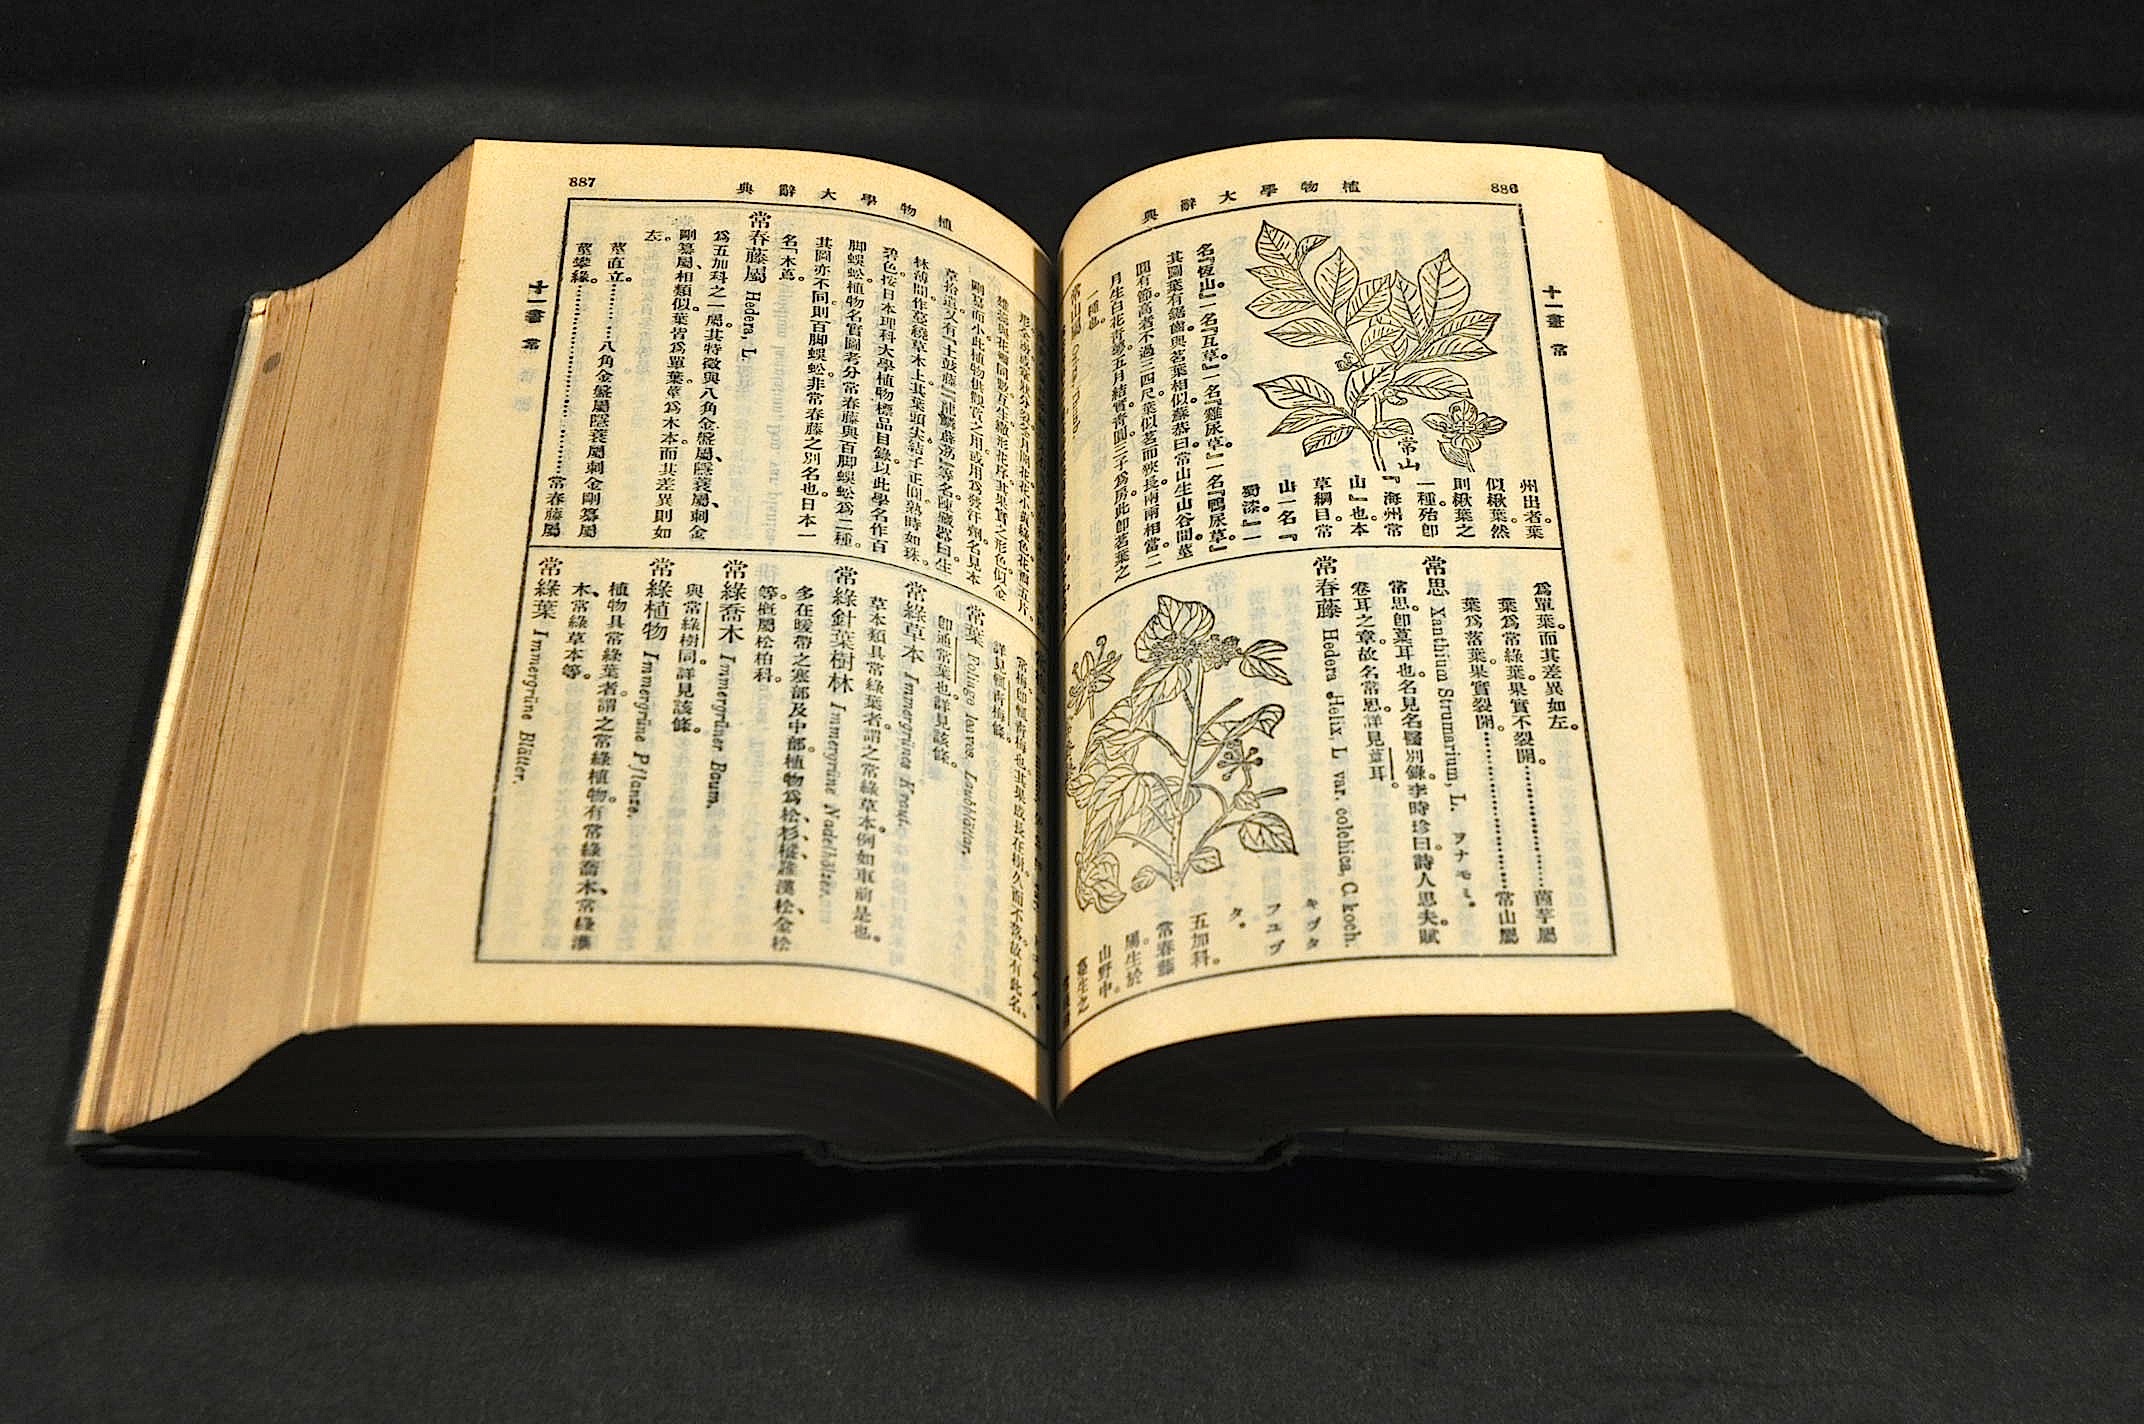 886
植物學大辭典
十一畫 常
州出者。葉
似楸葉。然
則楸葉之
一種。殆卽
『海州常
山』也。本
草綱目。常
山一名『
蜀漆。』一
名『恆山。』一名『互草。』一名『雞尿草。』一名『鴨尿草。』
其圖葉有鋸齒。與茗葉相似。蘇恭曰。常山生山谷間。莖
圓有節。高者不過三四尺。葉似茗而狹長。兩兩相當。二
月生白花。青萼。五月結實青圓。三子爲房。此卽茗葉之
一種也。
常山屬
常山
爲單葉。而其差異如左。
葉爲常綠葉。果實不裂開。……茵芋屬
葉爲落葉。果實裂開。……常山屬
常思 Xanthium Strumarium, L. ヲナモミ。
常思。卽葈耳也。名見名醫別錄。李時珍曰。詩人思夫。賦
卷耳之章。故名常思。詳見葈耳。
常春藤 Hedera Helix, L. var. colchica, C. koch.
キヅタ
フユヅ
タ。
五加科。
常春藤
屬。生於
山野中。
887
植物學大辭典
十一畫 常
草拾遺。又有『土鼓藤』『龍鱗薜荔』等名。陳藏器曰。生
林薄間。作蔓繞草木上。其葉頭尖。結子正圓。熟時如珠。
碧色。按日本理科大學植物標品目錄。以此學名作百
脚蜈蚣。植物名實圖考分常春藤與百脚蜈蚣爲二種。
其圖亦不同。則百脚蜈蚣非常春藤之別名也。日本一
名『木蔦』
常春藤屬 Hedera, L.
爲五加科之一屬。其特徵與八角金盤屬、隱蓑屬、刺金
剛纂屬、相類似。葉皆爲單葉。莖爲木本。而其差異則如
左。
莖直立。……八角金盤屬隱蓑屬刺金剛纂屬
莖攀緣。……常春藤屬
常梅。卽輒青梅也。其果成長在樹。久而不落。故有此名。
詳見輒青梅條。
常葉 Foliage leaves, Laubblätter.
卽通常葉也。詳見該條。
常綠草本 Immergrünes Kraut.
草本類具常綠葉者。謂之常綠草本。例如車前是也。
常綠針葉樹林 Immergrüne Nadelhölzer.
多在暖帶之寒部及中部。植物爲松、杉、樅、羅漢松、金松
等。槪屬松柏科。
常綠喬木 Immergrüner Baum.
與常綠樹同。詳見該條。
常綠植物 Immergrüne Pflanze.
植物具常綠葉者。謂之常綠植物。有常綠喬木、常綠灌
木、常綠草本等。
常綠葉 Immergrüne Blätter.